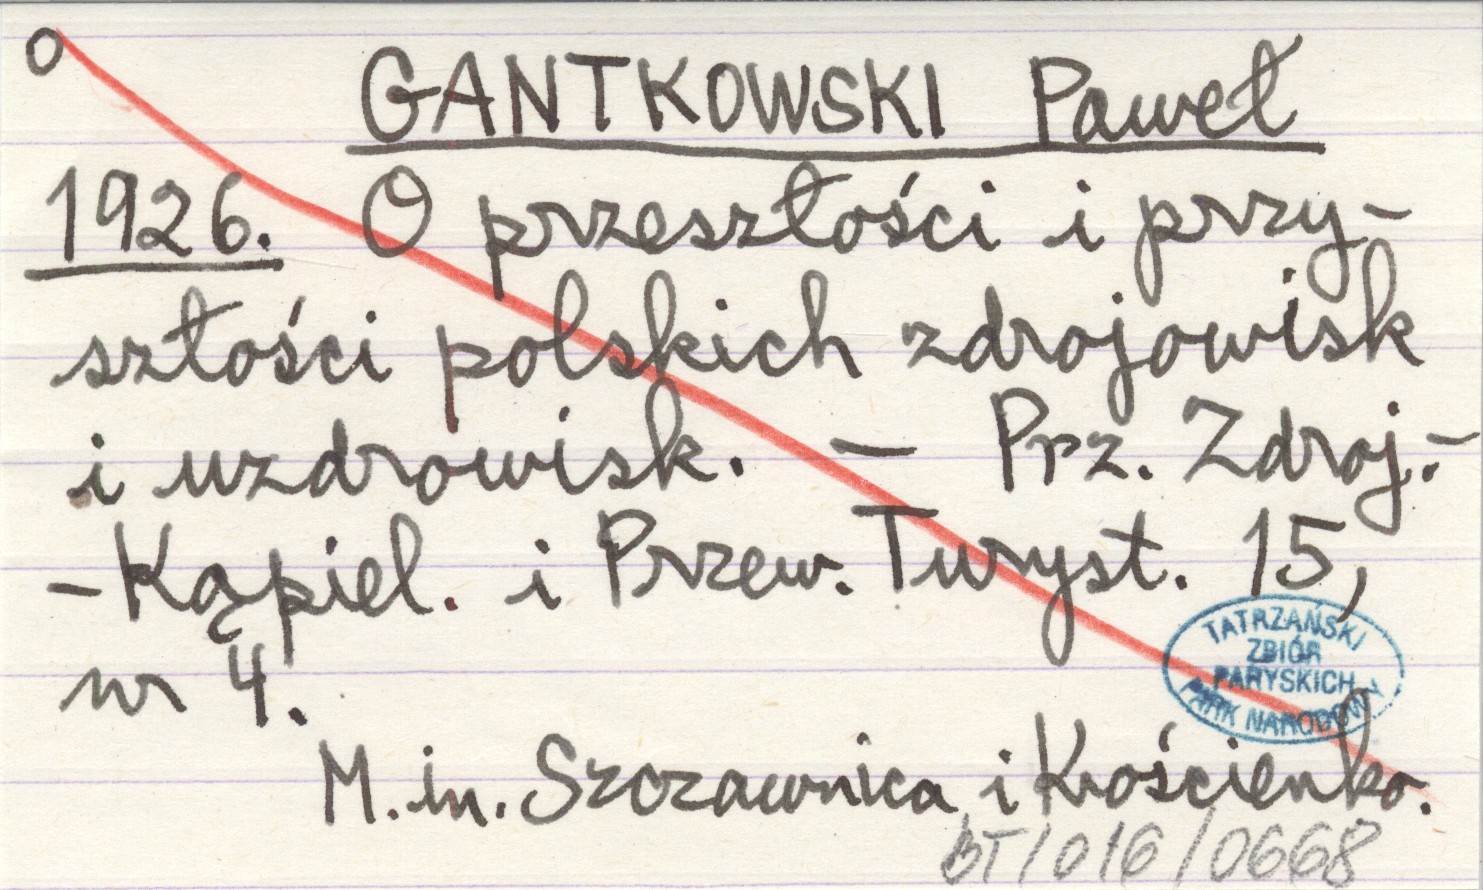 O
GANTKOWSKI Paweł
1926. O przeszłości i przy-
szłości polskich zdrojowisk
i uzdrowisk. — Prz. Zdroj.-
-Kąpiel. i Przew. Turyst. 15,
nr 4.
TATRZAŃSKI
ZBIÓR
PARYSKICH
PARK NARODOWY
M. in. Szczawnica i Krościenko.
BT/016/0668